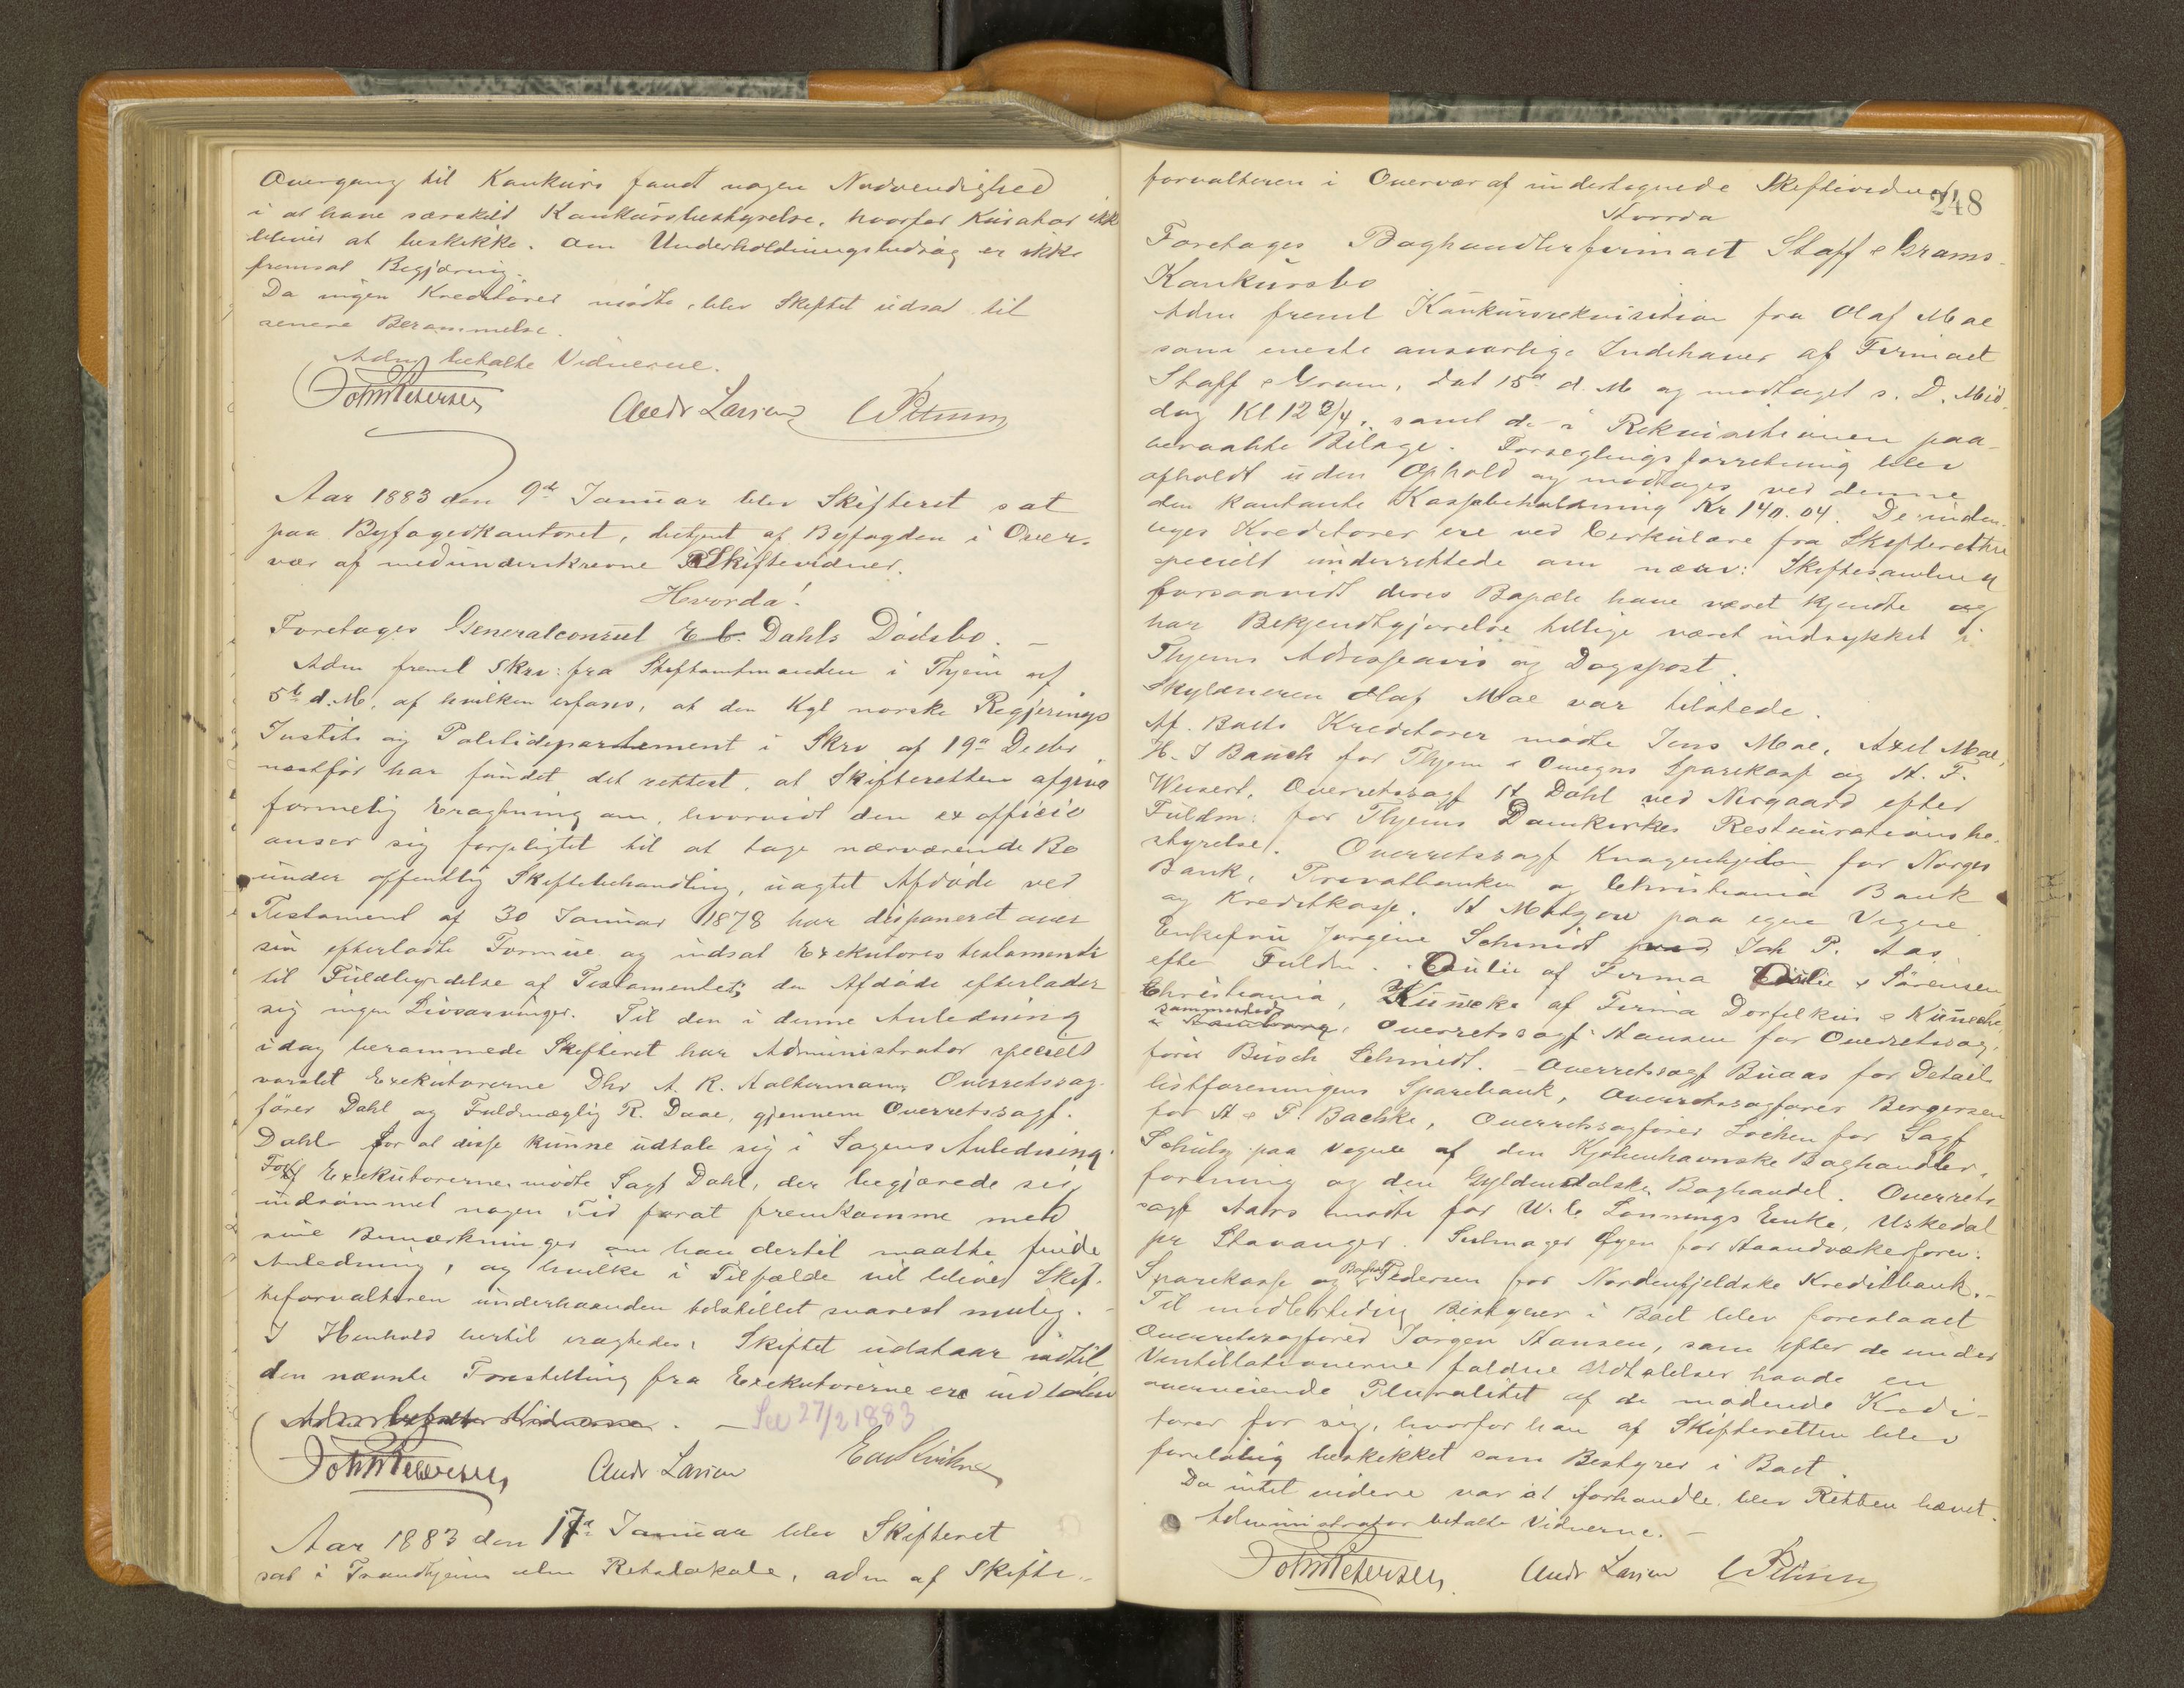 Overgang til Konkurs fandt nogen Nødvendighed
i at have særskilt Konkursbestyrelse, hvorfor Kurator ikke
bliver at beskikke. Om Underholdningsbidrag er ikke
fremsat Begjæring.
Da ingen Kreditorer mødte, blev Skiftet udsat til
senere Berammelse.
Adm betalte Vidnerne.
John Petersen Andr Larsen
Aar 1883 den 9de Januar blev Skifteret sat
paa Byfogedkontoret, betjent af Byfogden i Over-
vær af medunderskrevne Skiftevidner.
Hvorda!
Foretages Generalconsul E. C. Dahls Dødsbo. —
Adm freml Skr: fra Stiftamtmanden i Thjem af
5te d. M. af hvilken erfares, at den Kgl norske Regjerings
Justits og Politidepartement i Skr af 19de Decbr
næstfør har fundet det rettest, at Skifteretten afgiver
formelig Eragtning om, hvorvidt den ex officio
anser sig forpligtet til at tage nærværende Bo
under offentlig Skiftebehandling, uagtet Afdøde ved
Testament af 30 Januar 1878 har disponeret over
sin efterladte Formue og indsat Exekutores testamenti
til Fuldbyrdelse af Testamentet, da Afdøde efterlader
sig ingen Livsarvinger. Til den i denne Anledning
idag berammede Skifteret har Administrator specielt
varslet Exekutorerne Dhr A. R. Kolterman, Overretssag-
fører Dahl og Fuldmægtig R. Daae, gjennem Overretssagf.
Dahl for at disse kunne udtale sig i Sagens Anledning.
For Exekutorerne mødte Sagf Dahl, der begjærede sig
indrømmet nogen Tid forat fremkomme med
sine Bemærkninger om han dertil maatte finde
Anledning, og hvilke i Tilfælde vil blive Skif-
teforvalteren underhaanden tilstillet snarest mulig. —
I Henhold hertil eragtedes: Skiftet udstaar indtil
den nævnte Forestilling fra Exekutorerne ere
Adm betalte Vidnerne. — See 27/2 1883
John Petersen Andr Larsen
Aar 1883 den 17de Januar blev Skifteret
sat i Trondhjems alm Retslokale, adm af Skifte-
forvalteren i Overvær af undertegnede Skiftevidner
248
Hvorda
Foretages Boghandlerfirmaet Staff & Grams
Konkursbo
Adm freml Konkursrekvisition fra Olaf Moe
som eneste ansvarlige Indehaver af Firmaet
Staff & Gram, dat 15de d. M og modtaget s. D. Mid-
dag Kl 12 3/4, samt de i Rekvisitionen paa-
beraabte Bilage. Forseglingsforretning blev
afholdt uden Ophold og modtages ved denne
den kontante Kassebeholdning Kr 140.04. De inden-
byes Kreditorer ere ved Cirkulære fra Skifteretten
specielt underrettede om næv: Skiftesamling
forsaavidt deres Bopæle have været kjendte og
har Bekjendtgjørelse tillige været indrykket i
Thjems Adresseavis og Dagspost.
Skyldneren Olaf Moe var tilstede.
Af Boets Kreditorer mødte Jens Moe, Axel Moe,
H. J Bauck for Thjem & Omegns Sparekasse og A. F.
Weisert, Overretssagf H Dahl ved Nergaard efter
Fuldm: for Thjems Domkirkes Restaurationsbe-
styrelse. Overretssagf Knagenhjelm for Norges
Bank, Privatbanken og Christiania Bank
og Kreditkasse. H Metzow paa egne Vegne
Enkefru Jørgine Schmidt ved Joh P. Aas
efter Fuldm. Oulie af Firma Oulie & Sørensen
Christiania, Künecke af Firma Dorfelkus & Künecke,
sammesteds
i Hamburg, Overretssagf Hansen for Overretssag-
fører Busch Schmidt. — Overretssagf Buaas for Detail-
listforeningens Sparebank, Overretssagfører Bergersen
for H & F. Bachke, Overretssagfører Lochen for Sagf
Schulz paa Vegne af den Kjøbenhavnske Boghandler-
forening og den Gyldendalske Boghandel. Overrets-
sagf Aars mødte for W. C. Lønnings Enke, Uskedal
pr Stavanger. Salmager Øyen for Haandværkerforen:
Sparekasse og Bogh Pedersen for Nordenfjeldske Kreditbank. —
Til midlertidig Bestyrer i Boet blev foreslaaet
Overretssagfører Jørgen Hansen, som efter de under
Ventillationerne faldne Udtalelser havde en
overveiende Pluralitet af de mødende Kredi-
torer for sig, hvorfor han af Skifteretten blev
foreløbig beskikket som Bestyrer i Boet.
Da intet videre var at forhandle, blev Retten hævet.
Administrator betalte Vidnerne. —
John Petersen. Andr Larsen